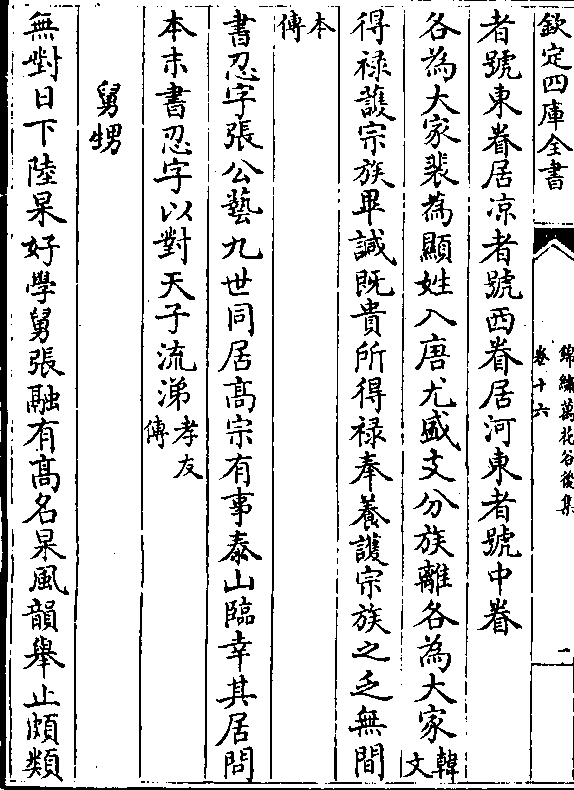 欽定四庫全書
錦繡萬花谷後集
卷十六
二
者號東眷居凉者號西眷居河東者號中眷
各為大家裴為顯姓入唐尤盛支分族離各為大家韓文
得禄護宗族畢諴既貴所得禄奉養護宗族之乏無間
本傳
書忍字張公藝九世同居髙宗有事泰山臨幸其居問
本末書忍字以對天子流涕孝友傳
舅甥
無對日下陸杲好學舅張融有髙名杲風韻舉止頗類